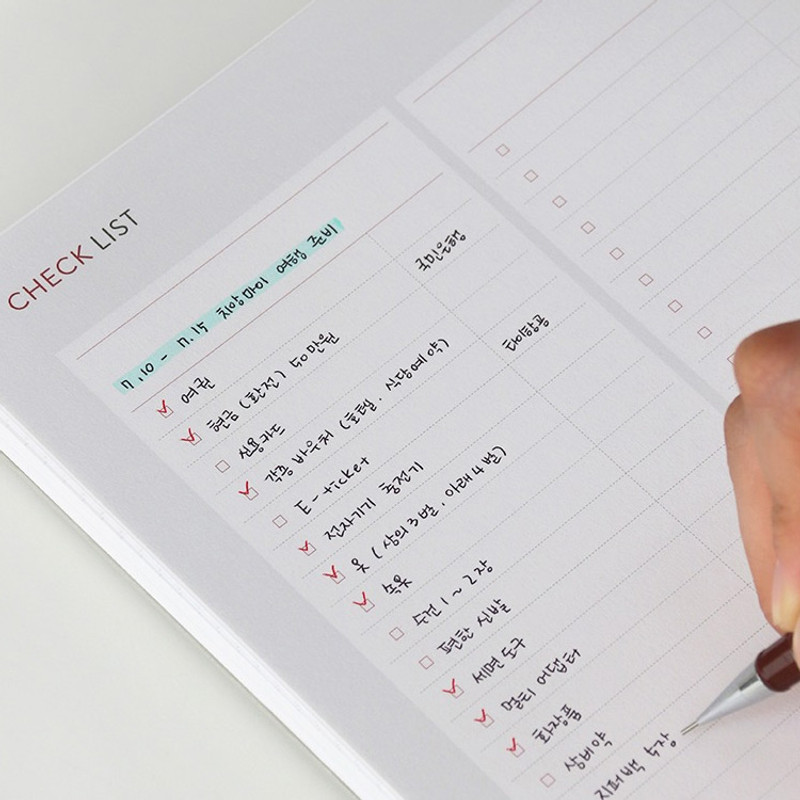 CHECK LIST
7.10 - 7.15 치앙마이 여행 준비
여권
현금 (환전) 50만원 국민은행
신용카드
각종 바우처 (호텔. 식당예약)
E-ticket 타이항공
전자기기 충전기
옷 (상의3벌. 아래4벌)
속옷
수건 1~2장
편한 신발
세면도구
멀티 어댑터
화장품
상비약
지퍼백 5장